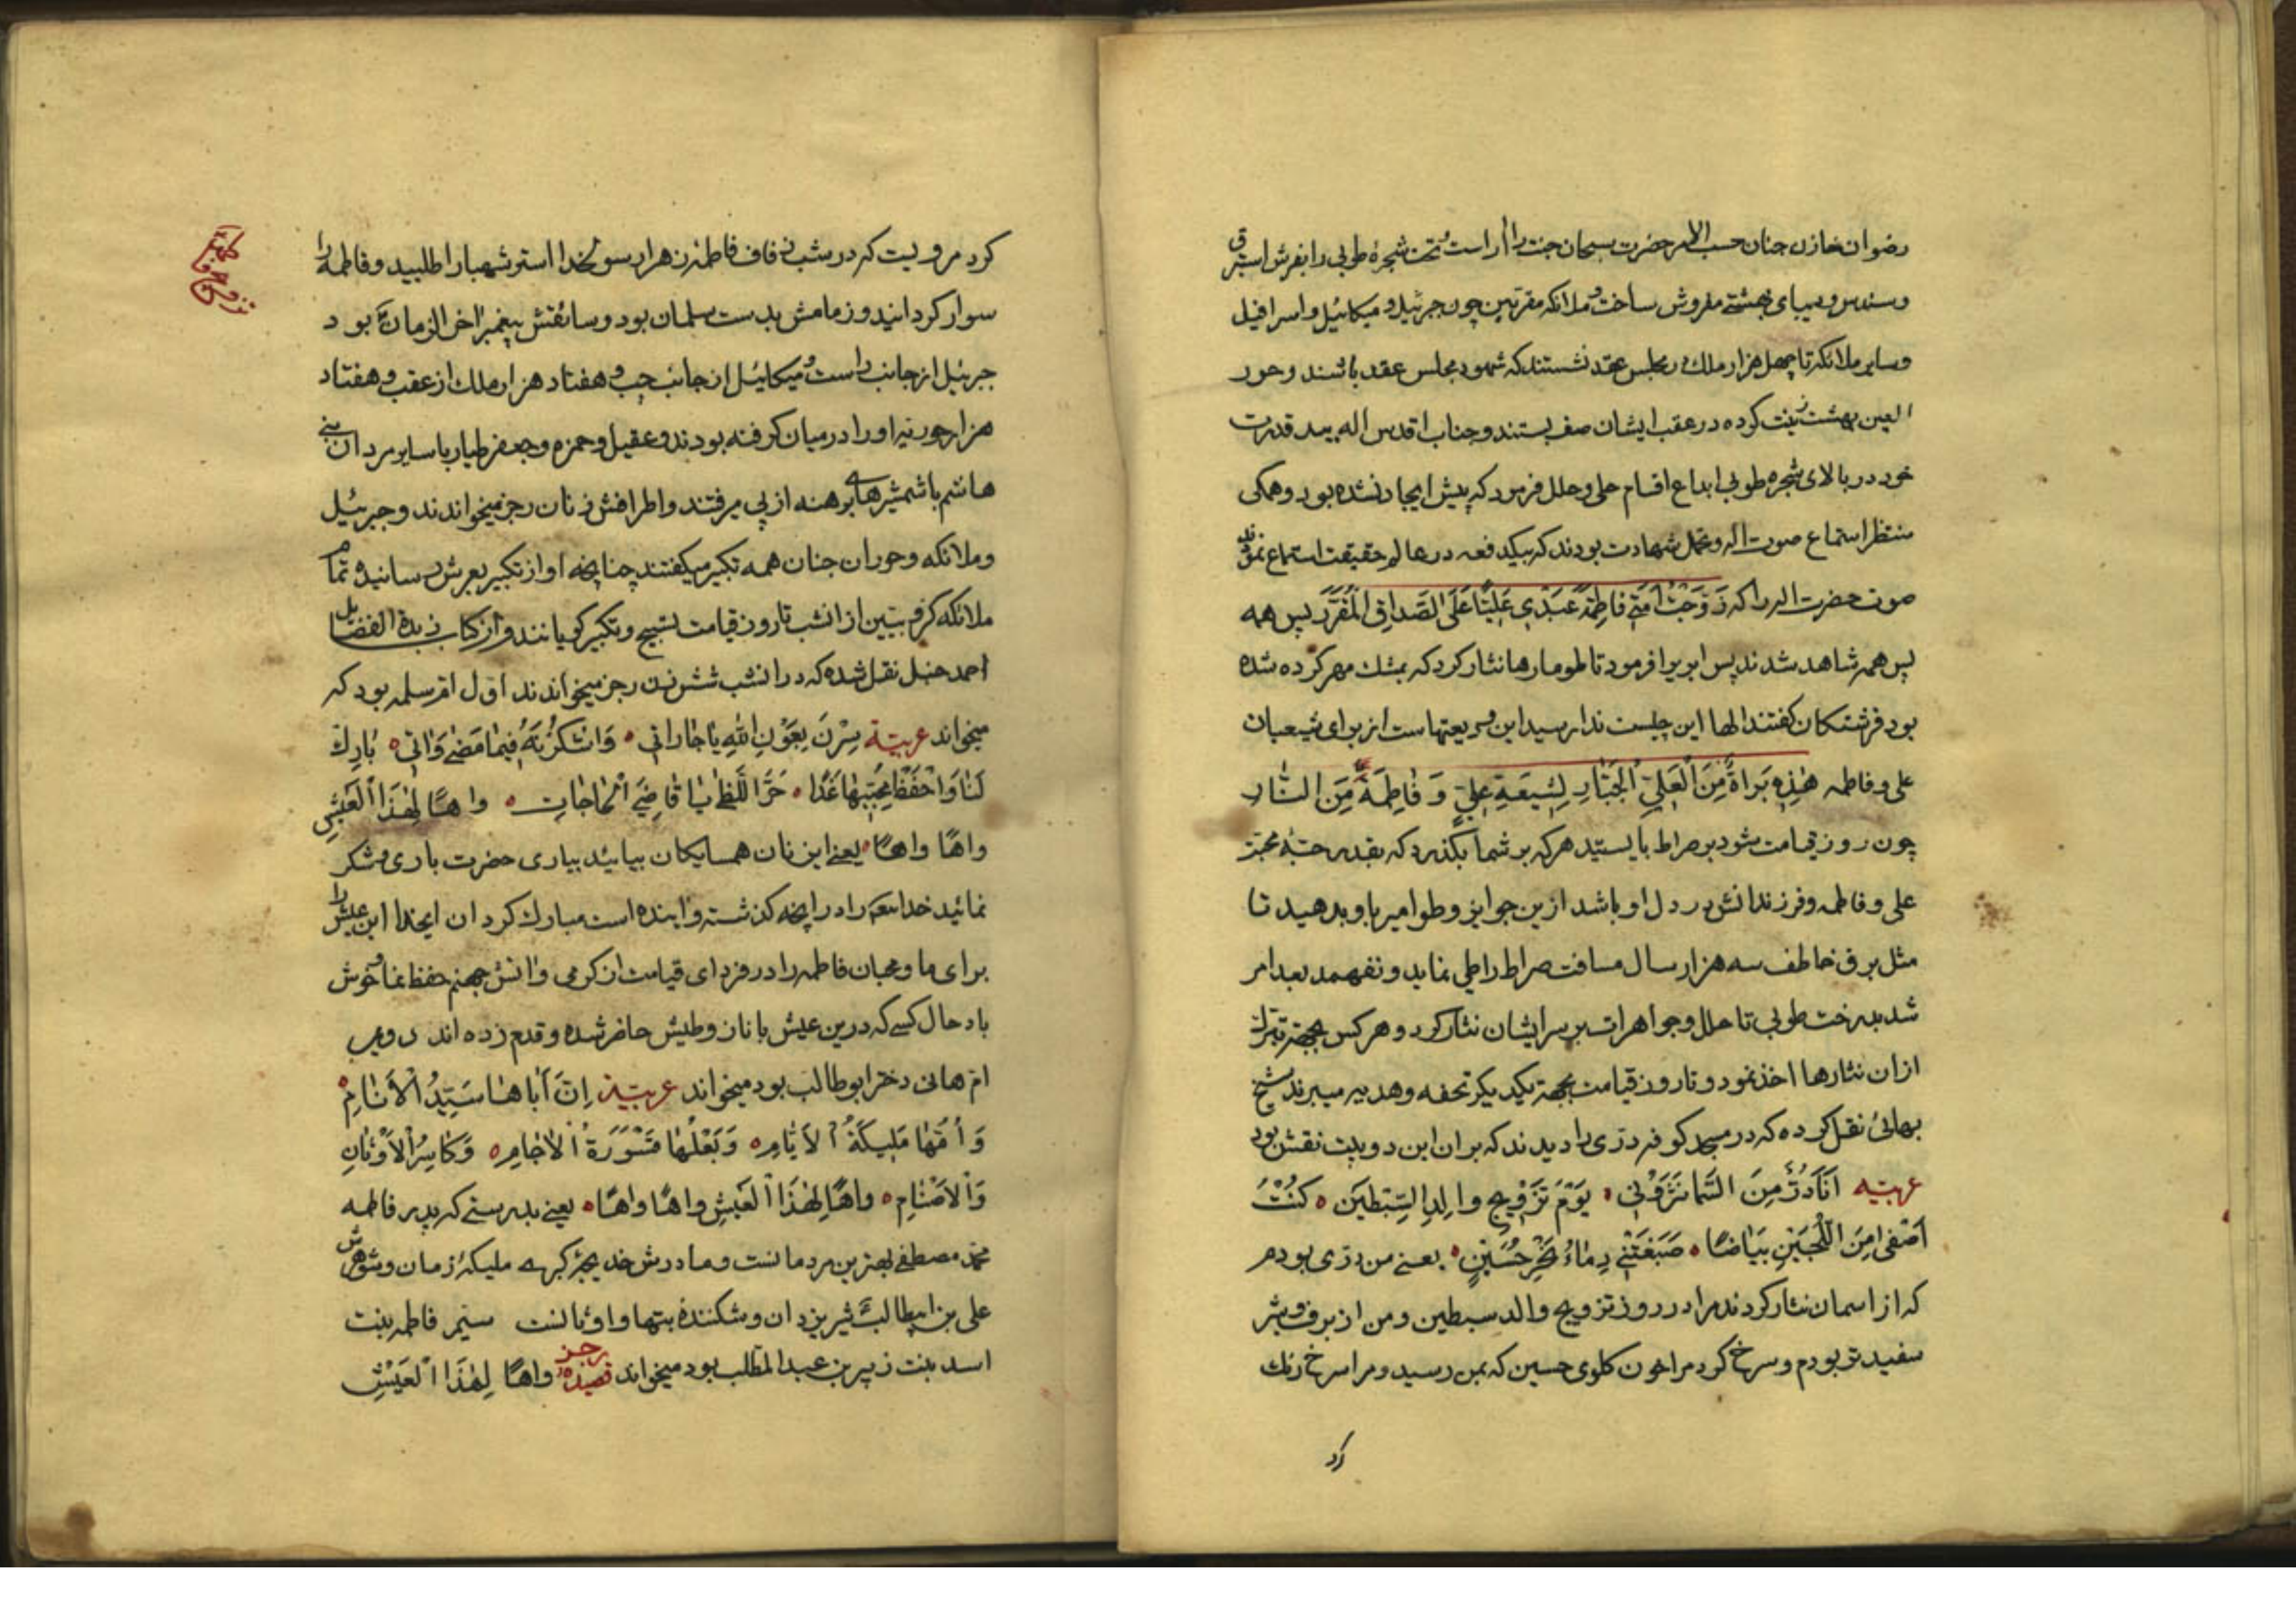 رضوان خازن جنان حسب الامر حضرت سبحان جنت را آراست و تحت شجرهٔ طوبی را بفرش استبرق
و سندس و دیبای بهشتی مفروش ساخت و ملائکه مقربین چون جبرئیل و میکائیل و اسرافیل
و سایر ملائکه تا چهل هزار ملک در مجلس عقد نشستند که شهود مجلس عقد باشند و حور
العین بهشت زینت کرده در عقب ایشان صف بستند و جناب اقدس اله بید قدرت
خود در بالای شجره طوبی ابداع اقسام حلی و حلل فرمود که پیش ایجاد نشده بود و همکی
منتظر استماع صوت اله و تحمل شهادت بودند که بیکدفعه در عالم حقیقت استماع نمودند
صوت حضرت اله را که زَوَّجْتُ اَمَتِی فَاطِمَةَ عَبْدِی عَلِیًّا عَلَی الصَّدَاقِ الْمُقَرَّر پس همه
پس همه شاهد شدند پس ابر را فرمود تا طومارها نثار کرد که بمشک مهر کرده شده
بود فرشتکان کفتند الها این چیست ندا رسید این ودیعتهاست از برای شیعیان
علی و فاطمه هٰذِهِ بَرَاةٌ مِنَ الْعَلِیِّ الْجَبَّارِ لِشِیعَةِ عَلِیٍّ وَ فَاطِمَةَ مِنَ النَّارِ
چون روز قیامت شود بر صراط بایستید هر که بر شما بکذرد که بقدر حبهٔ محبت
علی و فاطمه و فرزندانش در دل او باشد ازین جوایز و طوامیر باو بدهید تا
مثل برق خاطف سه هزار سال مسافت صراط را طی نماید و نفهمد بعد امر
شد بدرخت طوبی تا حلل و جواهرات بر سر ایشان نثار کرد و هر کس بجهة تبرک
از ان نثارها اخذ نمود و تا روز قیامت بجهة یکدیکر تحفه و هدیه میبرند شیخ
بهائی نقل کرده که در مسجد کوفه درّی را دیدند که بر ان این دو بیت نقش بود
عربیه اَنَا دُرٌّ مِنَ السَّمَا نَثَرُونِی ٥ یَوْمَ تَزْوِیجِ وَالِدِ السِّبْطَیْن ٥ کُنْتُ
اَصْفٰی مِنَ اللُّجَیْنِ بَیَاضًا ٥ صَبَغَتْنِی دِمَاءُ نَحْرِ حُسَیْنٍ ٥ یعنی من درّی بودم
که از اسمان نثار کردند مرا در روز تزویج والد سبطین و من از برف و شیر
سفیدتر بودم و سرخ کرد مرا خون کلوی حسین که بمن رسید و مرا سرخ رنک
کرد
کرد مرویست که در شب زفاف فاطمه زهرا رسولخدا استر شهبا را طلبید و فاطمه را
سوار کردانید و زمامش بدست سلمان بود و سائقش پیغمبر اخر الزمان بود
جبرئیل از جانب راست و میکائیل از جانب چپ و هفتاد هزار ملک از عقب و هفتاد
هزار حوریه او را در میان کرفته بودند و عقیل و حمزه و جعفر طیار با سایر مردان بنی
هاشم با شمشیرهای برهنه از پی میرفتند و اطرافش زنان رجز میخواندند و جبرئیل
و ملائکه و حوران جنان همه تکبیر میکفتند چنانچه اواز تکبیر بعرش رسانیده تمام
ملائکه کروبیین از انشب تا روز قیامت تسبیح و تکبیر کویانند و از کتاب زبدة الفضایل
احمد حنبل نقل شده که در انشب شش زن رجز میخواندند اول ام سلمه بود که
میخواند عربیّة سِرْنَ بِعَوْنِ اللهِ یَا جَارَاتِی ٥ وَ اشْکُرْنَهُ فِیمَا مَضٰی وَ اٰتِی ٥ بَارِك
لَنَا وَ احْفَظْ مُحِبِّیهَا غَدًا ٥ حَرَّ اللَّظٰی یَا قَاضِیَ الْحَاجَاتِ ٥ وَاهًا لِهٰذَا الْعَیْشِ
وَاهًا وَاهًا ٥ یعنی ای زنان همسایکان بیائید بیاری حضرت باری و شکر
نمائید خدایتعه را در انچه کذشته و اینده است مبارک کردان ایخدا این عیش را
برای ما و محبان فاطمه را در فردای قیامت از کرمی و اتش جهنم حفظ نما و خوش
باد حال کسی که درین عیش با ناز و طیش حاضر شده و قدم زده اند دویم
ام هانی دختر ابو طالب بود میخواند عربیّة اِنَّ اَبَاهَا سَیِّدُ الْاَنَامِ ٥
وَ اُمَّهَا مَلِیکَةُ الْاَیَّامِ ٥ وَ بَعْلَهَا قَسْوَرَةُ الْاٰجَامِ ٥ وَ کَاسِرُ الْاَوْثَانِ
وَ الْاَصْنَامِ ٥ وَاهًا لِهٰذَا الْعَیْشِ وَاهًا وَاهًا ٥ یعنی بدرستی که پدر فاطمه
محمد مصطفی بهترین مردمانست و مادرش خدیجهٔ کبری ملیکهٔ زمان و شوهرش
علی بن ابیطالب شیر یزدان و شکنندهٔ بتها و اوثانست سیّم فاطمه بنت
اسد بنت زبیر بن عبد المطلب بود میخواند رجز قصیده وَاهًا لِهٰذَا الْعَیْشِ